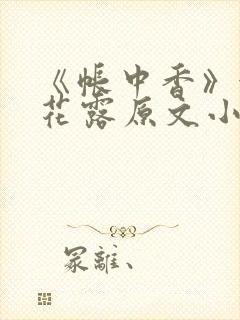 《帐中香》
花露原文小
冢離、